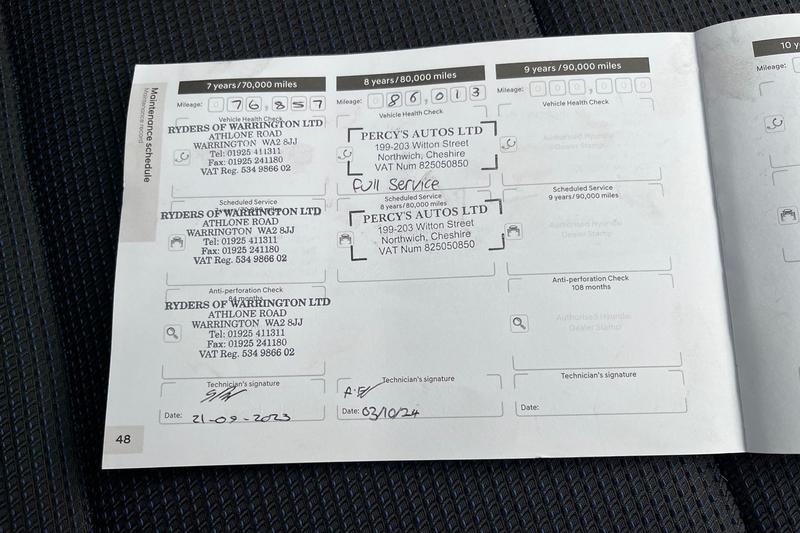 Maintenance schedule
Maintenance record
7 years/70,000 miles
Mileage: 076,857
Vehicle Health Check
RYDERS OF WARRINGTON LTD
ATHLONE ROAD
WARRINGTON WA2 8JJ
Tel: 01925 411311
Fax: 01925 241180
VAT Reg. 534 9866 02
Scheduled Service
RYDERS OF WARRINGTON LTD
ATHLONE ROAD
WARRINGTON WA2 8JJ
Tel: 01925 411311
Fax: 01925 241180
VAT Reg. 534 9866 02
Anti-perforation Check
84 months
RYDERS OF WARRINGTON LTD
ATHLONE ROAD
WARRINGTON WA2 8JJ
Tel: 01925 411311
Fax: 01925 241180
VAT Reg. 534 9866 02
Technician's signature
Date: 21-09-2023
48
8 years/80,000 miles
Mileage: 086,013
Vehicle Health Check
PERCY'S AUTOS LTD
199-203 Witton Street
Northwich, Cheshire
VAT Num 825050850
Full Service
Scheduled Service
8 years/80,000 miles
PERCY'S AUTOS LTD
199-203 Witton Street
Northwich, Cheshire
VAT Num 825050850
Technician's signature
Date: 03/10/24
9 years/90,000 miles
Mileage: 000,000
Vehicle Health Check
Authorised Hyundai
Dealer Stamp
Scheduled Service
9 years/90,000 miles
Authorised Hyundai
Dealer Stamp
Anti-perforation Check
108 months
Authorised Hyundai
Dealer Stamp
Technician's signature
Date:
10 y
Mileage: